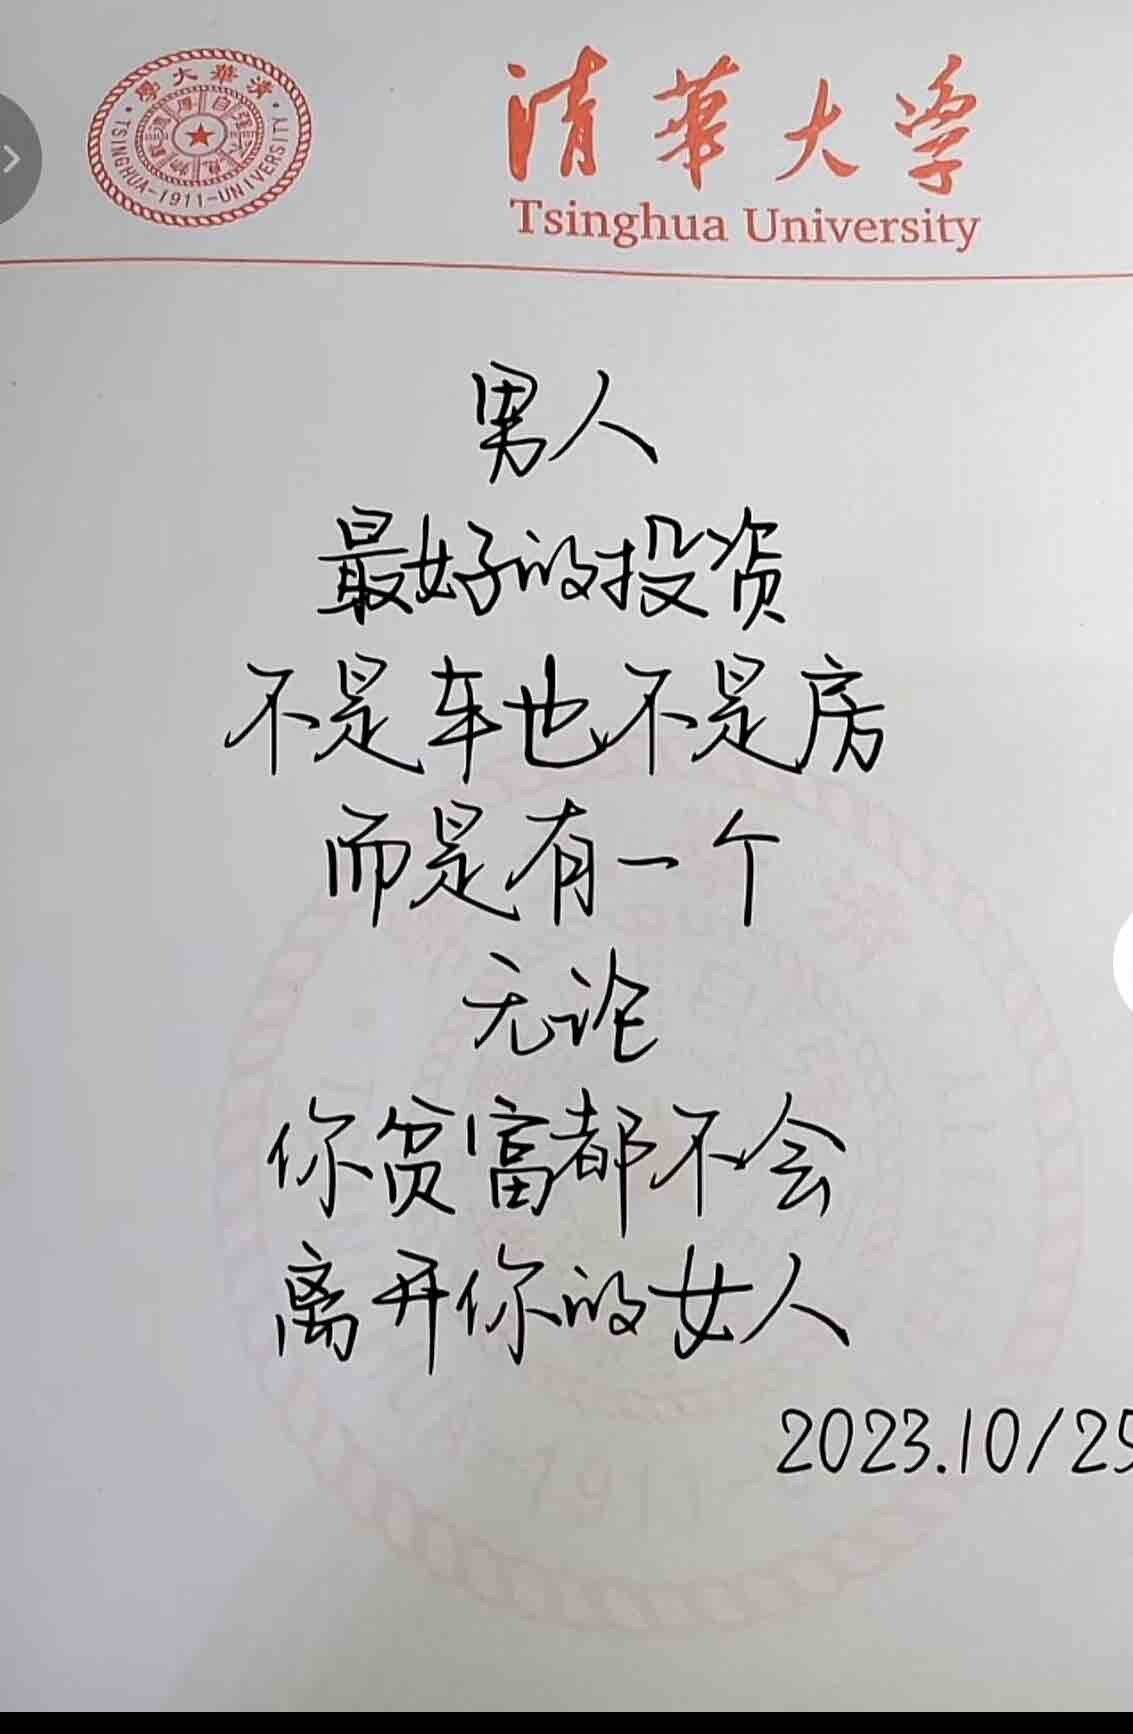 清華大学
Tsinghua University
清華大學
TSINGHUA-1911-UNIVERSITY
男人
最好的投资
不是车也不是房
而是有一个
无论
你贫富都不会
离开你的女人
2023.10/25